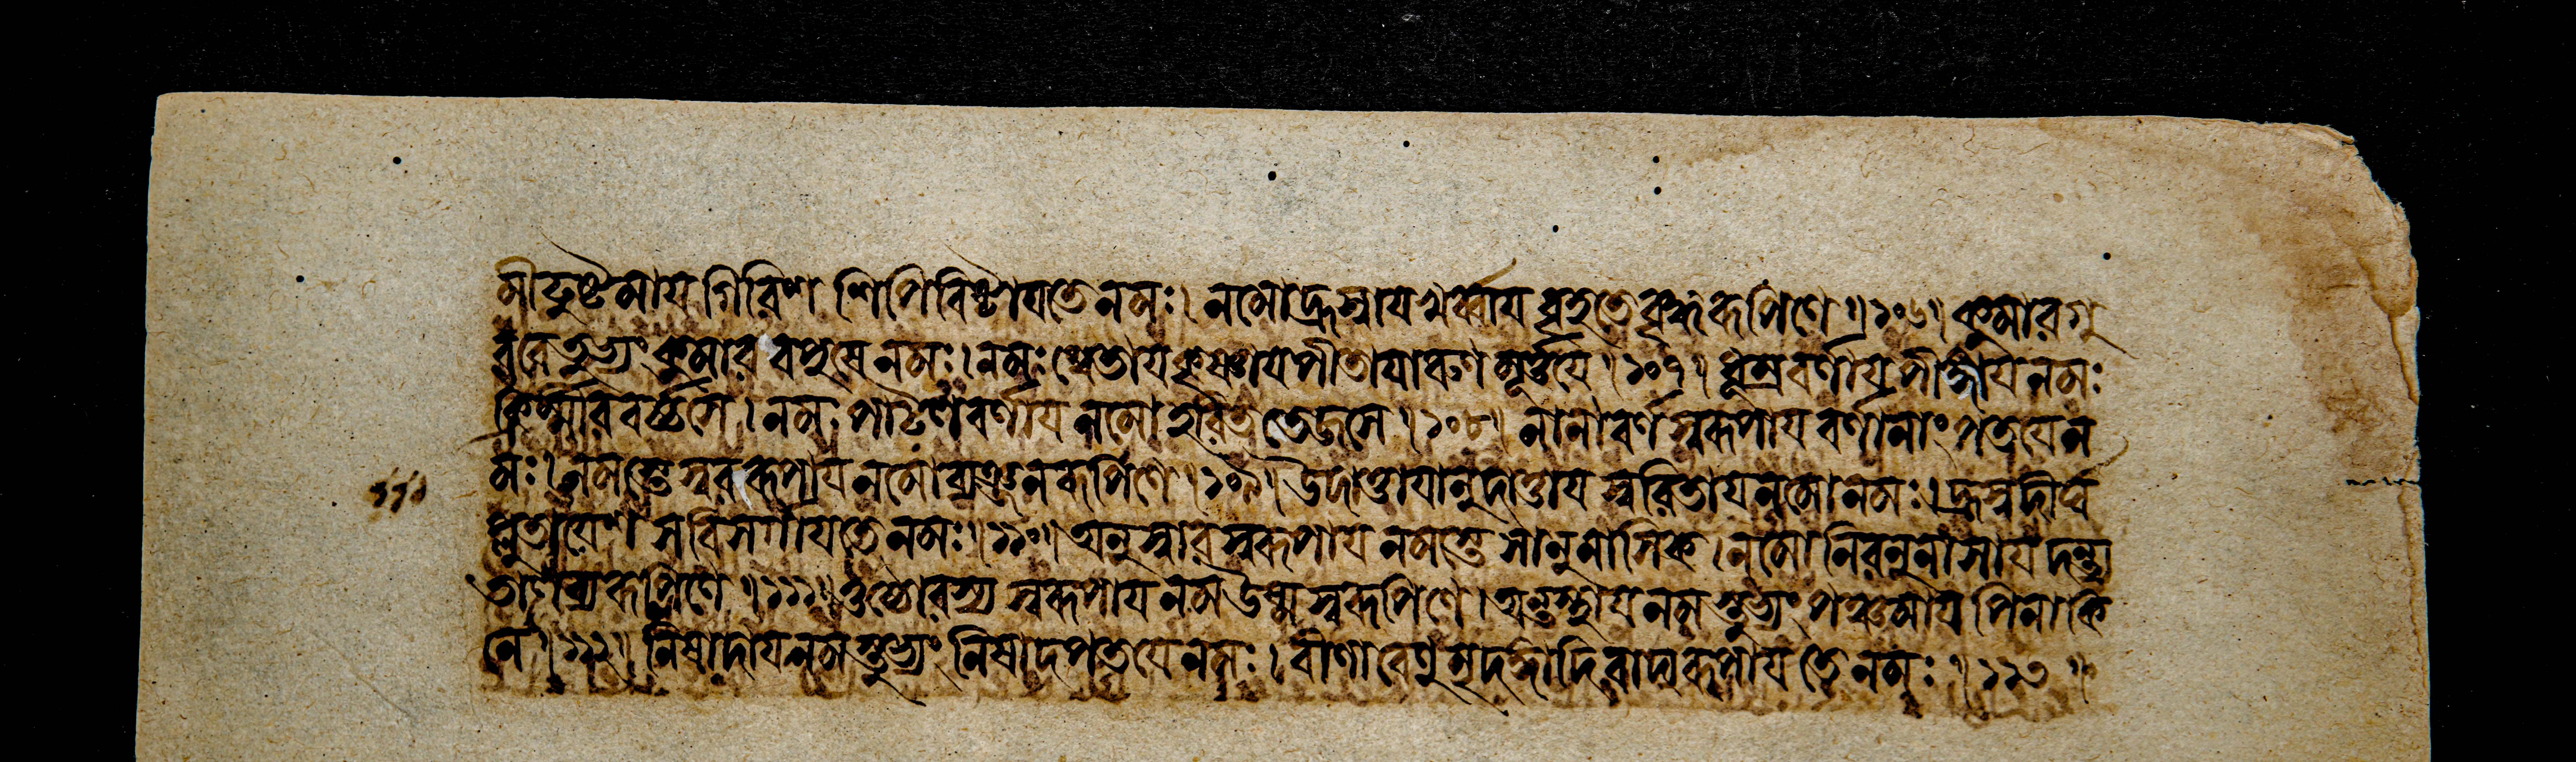 মীঢুষ্টমায গিরিশ শিপিবিষ্টায তে নমঃ । নমো হ্রস্বায খর্ব্বায বৃহতে বৃহদ্রূপিণে ॥ ১০৬॥ কুমারগু
রবে তুভ্যং কুমারবপুষে নমঃ । নমঃ শ্বেতায কৃষ্ণায পীতাযারুণমূর্ত্তযে ॥ ১০৭॥ ধূম্রবর্ণায পিঙ্গায নমঃ
কির্ম্মীরবর্চ্চসে । নমঃ পাটলবর্ণায নমো হরিততেজসে ॥ ১০৮॥ নানাবর্ণস্বরূপায বর্ণানাং পতযে ন
মঃ। নমস্তে স্বররূপায নমো ব্যঞ্জনরূপিণে ॥ ১০৯॥ উদাত্তাযানুদাত্তায স্বরিতায নমো নমঃ। হ্রস্বদীর্ঘ
প্লুতাযেশ সবিসর্গায তে নমঃ॥ ১১০॥ অনুস্বারস্বরূপায নমস্তে সানুনাসিক । নমো নিরনুনাসায দন্ত্য
তালব্যরূপিণে ॥ ১১১॥ ওষ্ঠ্যোরস্যস্বরূপায নম উষ্মস্বরূপিণে। অন্তস্থায নমস্তুভ্যং পঞ্চমায পিনাকি
নে ॥ ১১২॥ নিষাদায নমস্তুভ্যং নিষাদপতযে নমঃ । বীণাবেণুমৃদঙ্গাদিবাদ্যরূপায তে নমঃ ॥ ১১৩ ॥